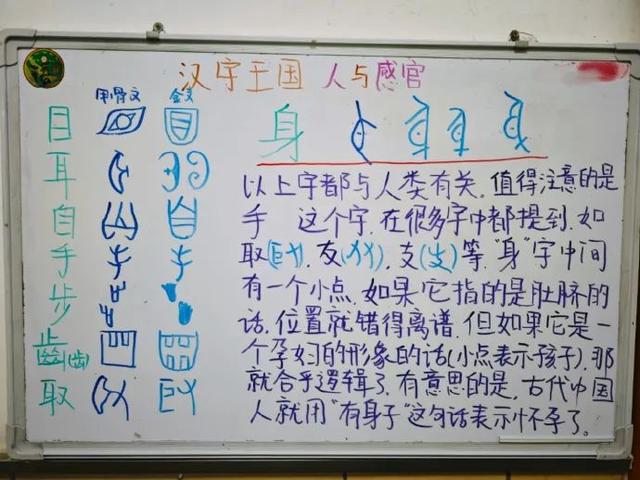 汉字王国 人与感官
甲骨文 金文
目
耳
自
手
步
齒(齿)
取
身
以上字都与人类有关.值得注意的是
手 这个字.在很多字中都提到.如
取( ),友( ),支( )等."身"字中间
有一个小点.如果它指的是肚脐的
话.位置就错得离谱.但如果它是一
个孕妇的形象的话(小点表示孩子).那
就合乎逻辑了.有意思的是,古代中国
人就用"有身子"这句话表示怀孕了。